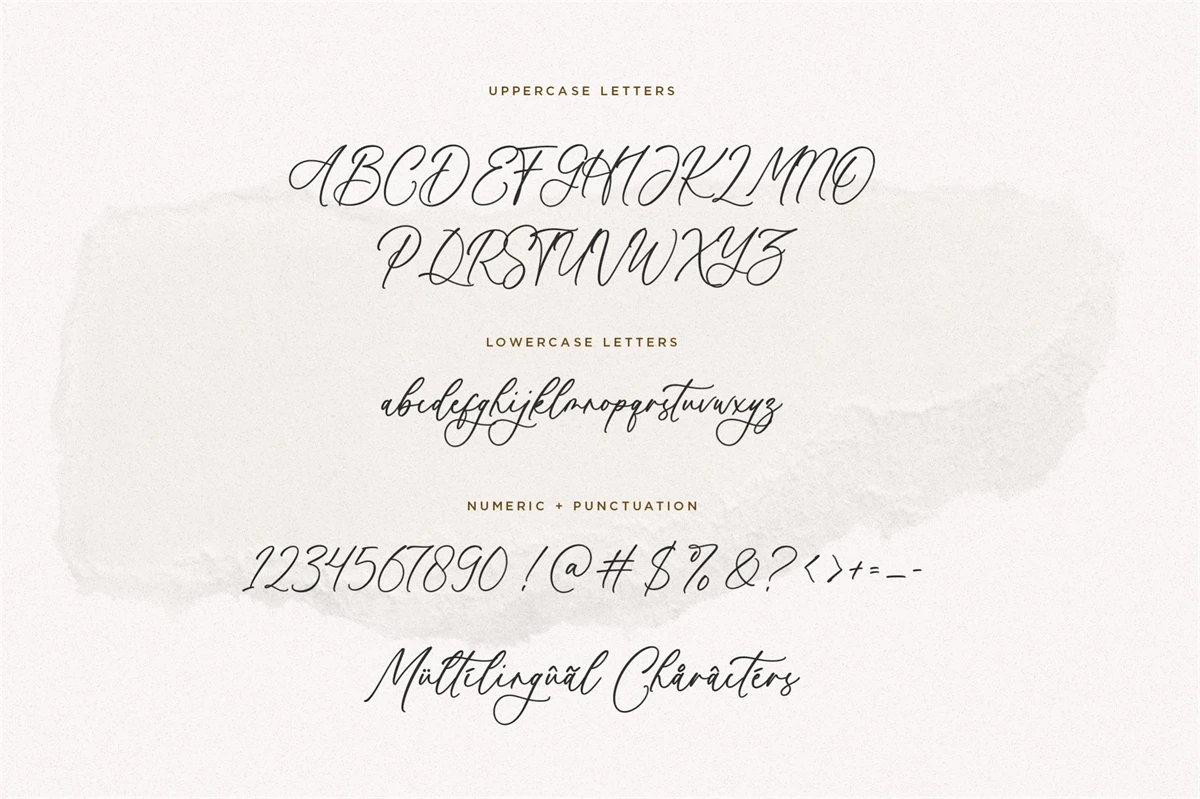 UPPERCASE LETTERS
ABCDEFGHIJKLMNO
PQRSTUVWXYZ
LOWERCASE LETTERS
abcdefghijklmnopqrstuvwxyz
NUMERIC + PUNCTUATION
1234567890 ! @ # $ % & ? < > + = _ -
Mültílingûãl Chåråctérs